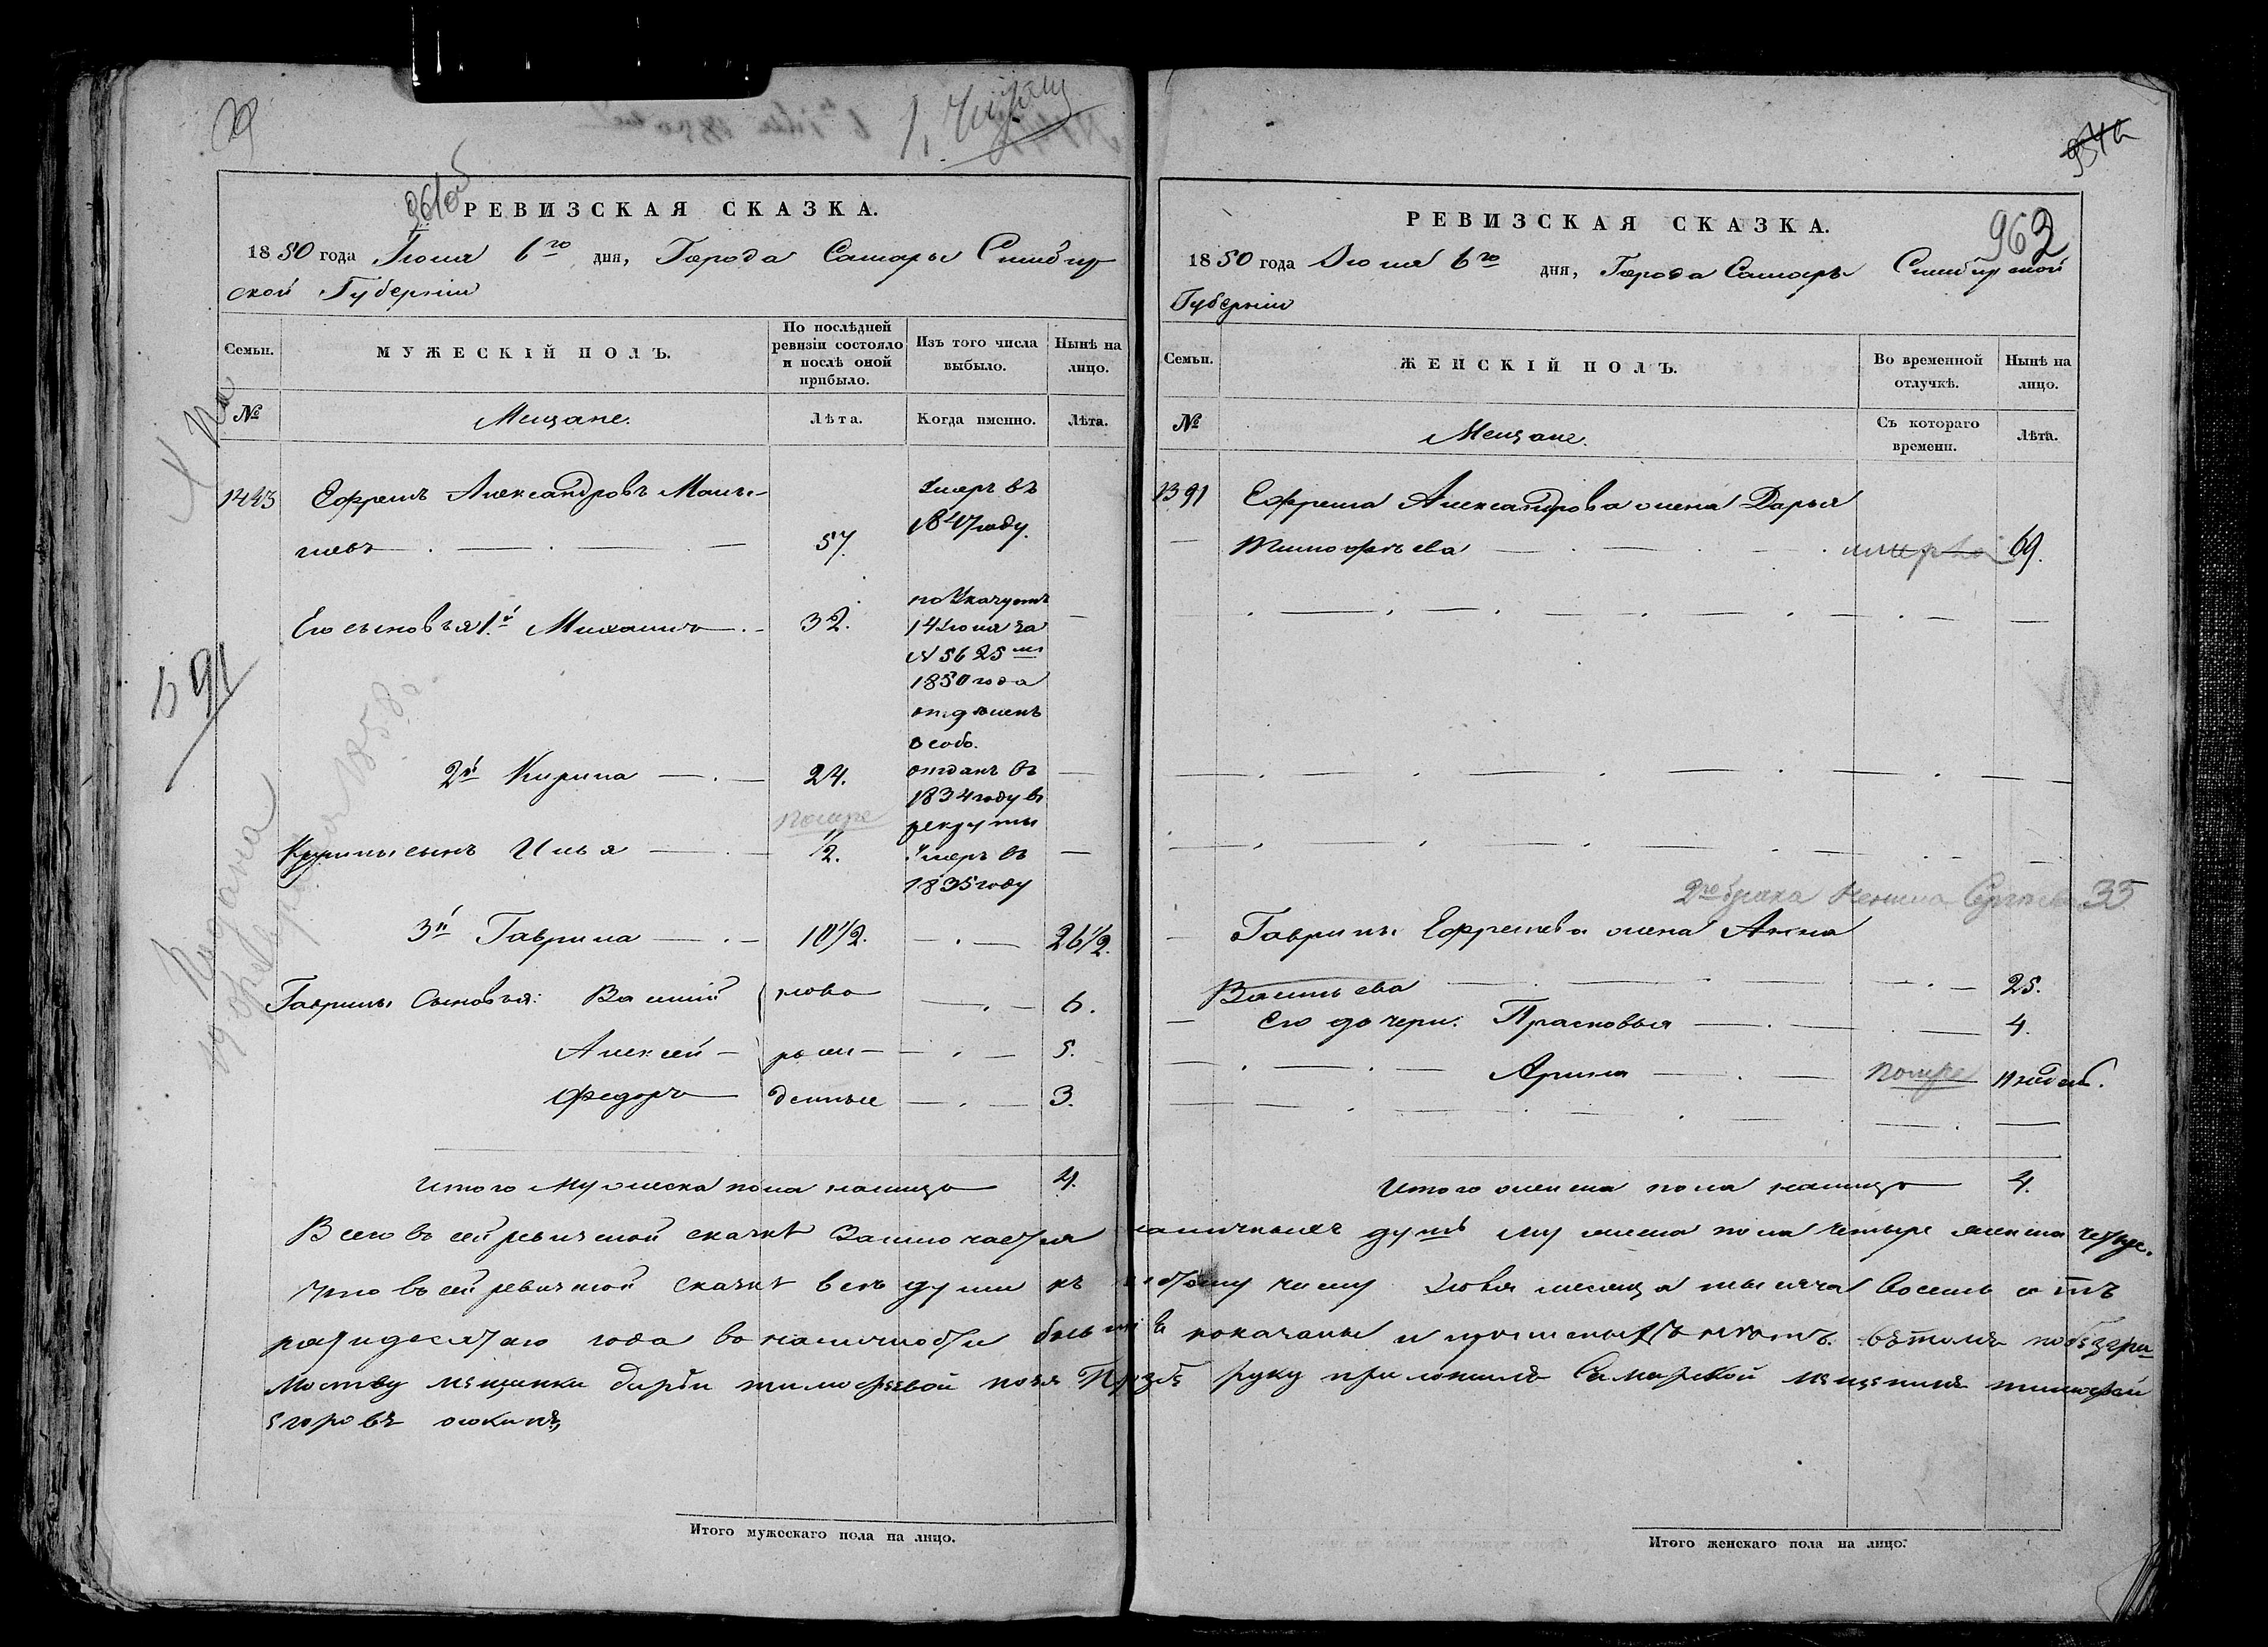 961об
РЕВИЗСКАЯ СКАЗКА.
1850 года Июня 6го дня, Города Самары Симбир
ской Губернии
Семьи.
МУЖЕСКІЙ ПОЛЪ.
По послѣдней ревизіи состояло и послѣ оной прибыло.
Изъ того числа выбыло.
Нынѣ на лицо.
№
Мещане.
Лѣта.
Когда именно.
Лѣта.
1443 Ефремъ Александровъ
57.
Умеръ въ
1847 году.
Его сыновья 1й Михаила 32.
по Указу отъ
14 Июня за
№ 5625
1850 года
отдѣленъ
особо.
2й Кирила 24.
отданъ въ
1834 году въ
рекруты
помре
Кирилы сынъ Илья 1/2.
Умеръ въ
1835 году
3й Гаврила 10 1/2. 26 1/2.
Гаврилы Сыновья: Василий ново 6.
Алексей рож 5.
Федоръ денные 3.
Итого мужеска пола налицо 4.
591
1858
963
РЕВИЗСКАЯ СКАЗКА.
1850 года Июня 6го дня, Города Самары Симбирской
Губернии
Семьи.
ЖЕНСКІЙ ПОЛЪ.
Во временной отлучкѣ.
Нынѣ на лицо.
№
Мещане.
Съ котораго времени.
Лѣта.
1391 Ефрема Александрова жена Дарья
Тимофѣева умерла 69.
2го брака жена 35
Гаврилы Ефремова жена Анна
Васильева 25.
Его дочери: Прасковья 4.
Арина помре 11 недель.
Итого женска пола налицо 4.
Всего въ сей ревизской сказкѣ Заключается наличныхъ душъ мужеска пола четыре женска четыре.
Что въ сей ревизской сказкѣ всѣ души къ числу Июня месяца тысяча восемь сотъ
пятидесятаго года въ наличности бывшие показаны и прописныхъ нѣтъ. въ томъ по безгра
мотству мещанки дарьи тимофевой поея Прозбѣ руку приложилъ Самарской мещенинъ тимофей
егоровъ
Итого мужескаго пола на лицо.
Итого женскаго пола на лицо.